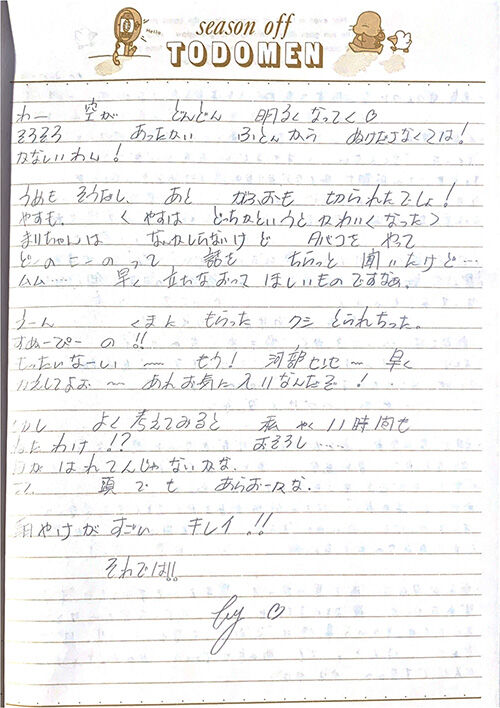 Hello.
season off
TODOMEN
わー 空が どんどん 明るくなってく♡
そろそろ あったかい ふとんから ぬけださなくては!
かなしいわん!
うめも そうだし、あと かおも 切られたでしょ!
やすも。 くやすは どっちかというと かわいくなった>
まりちゃんは なんかしらないけど タバコを やって
どーのこーのって 話を ちらっと 聞いたけど…
ムム… 早く 立ちなおって ほしいものですなぁ。
うーん くまに もらった クシ とられちった。
すぬーぴーの!!
もったいなーい 〜 もう! 河部センセ〜 早く
かえしてよお〜 あれお気に入りなんだぞ!
しかし よく考えてみると 私 やく11時間も
ねたわけ!? おそろし……
はれてんじゃないかな。
頭でも あらおーかな。
朝やけが すごい キレイ!!
それでは!!
by ♡